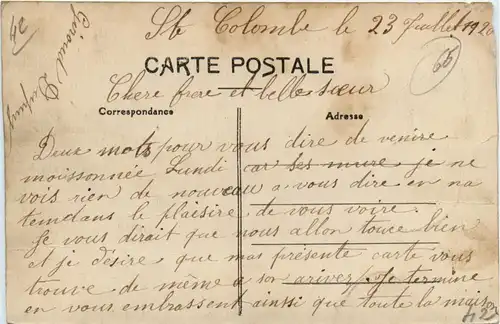 Ste Colombe le 23 Juillet 1920
CARTE POSTALE
Chere frere et belle sœur
Correspondance Adresse
Deux mots pour vous dire de venire
moissonnée Lundi car ses mure je ne
vois rien de nouveau a vous dire en na
temdans le plaisire de vous voire.
Je vous dirait que nous allon touce bien
et je désire que mas présente carte vous
trouve de même a son arivez. Je termine
en vous embrassent ainsi que toute la maison
Giroud
24
65